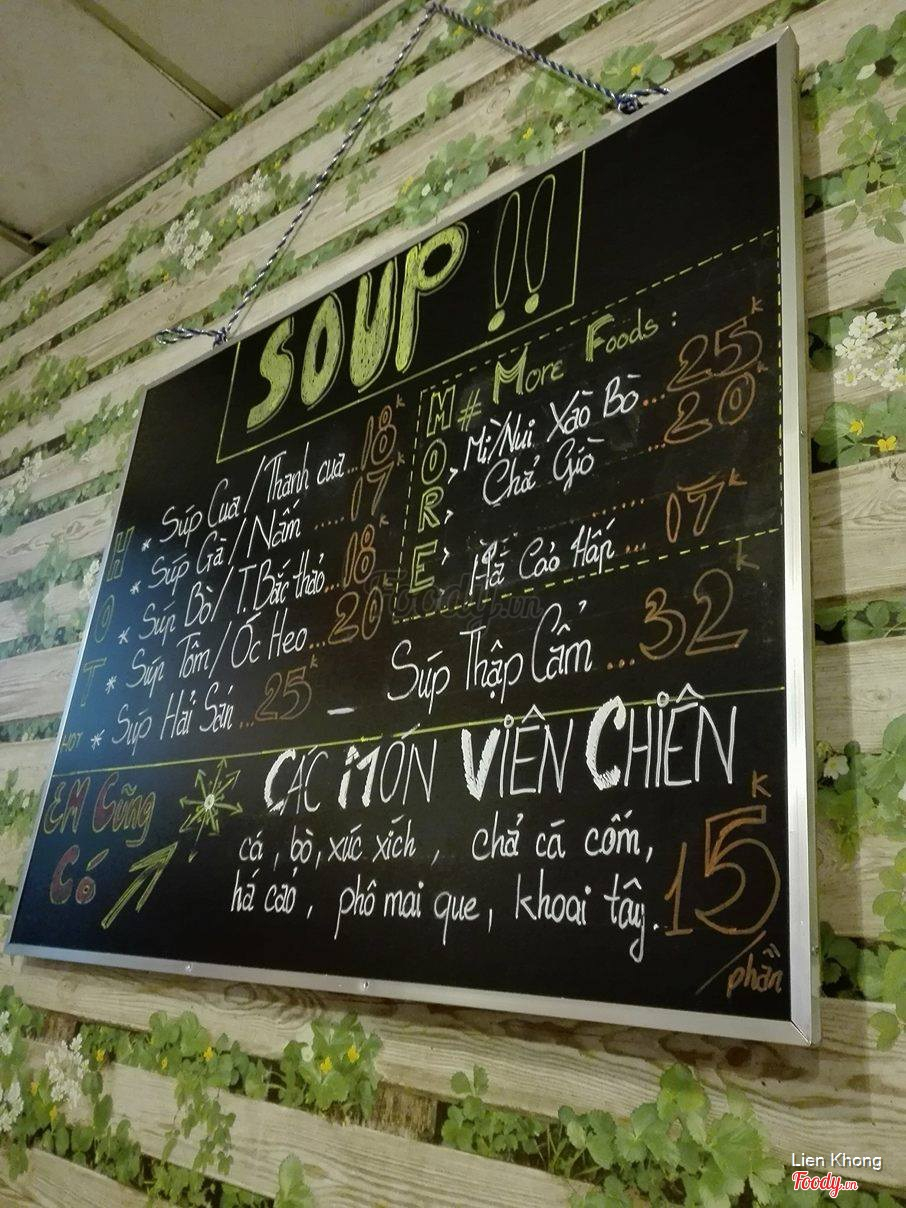 SOUP !!
HOT
HOT
* Súp Cua / Thanh cua...18k
* Súp Gà / Nấm .....17k
* Súp Bò / T. Bắc thảo...18k
* Súp Tôm / Óc Heo...20k
* Súp Hải Sản ...25k
MORE
# More Foods :
, Mì/Nui Xào Bò ...25k
, Chả Giò ...20k
, Há Cảo Hấp ... 17k
_ Súp Thập Cẩm ...32k
EM Cũng
Có
CÁC MÓN VIÊN CHIÊN
cá , bò, xúc xích , chả cá cốm,
há cảo , phô mai que, khoai tây..15k
/phần
Foody.vn
Lien Khong
Foody.vn